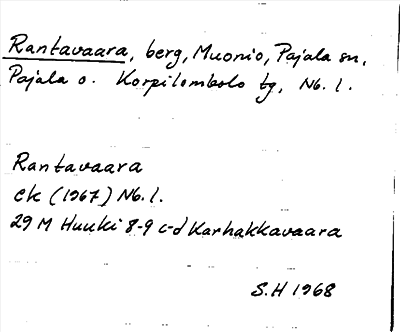 Rantavaara, berg, Muonio, Pajala sn,
Pajala o. Korpilombolo tg, Nb. l.
Rantavaara
ek (1967) Nb. l.
29 M Huuki 8-9 c-d Karhakkavaara
S.H 1968